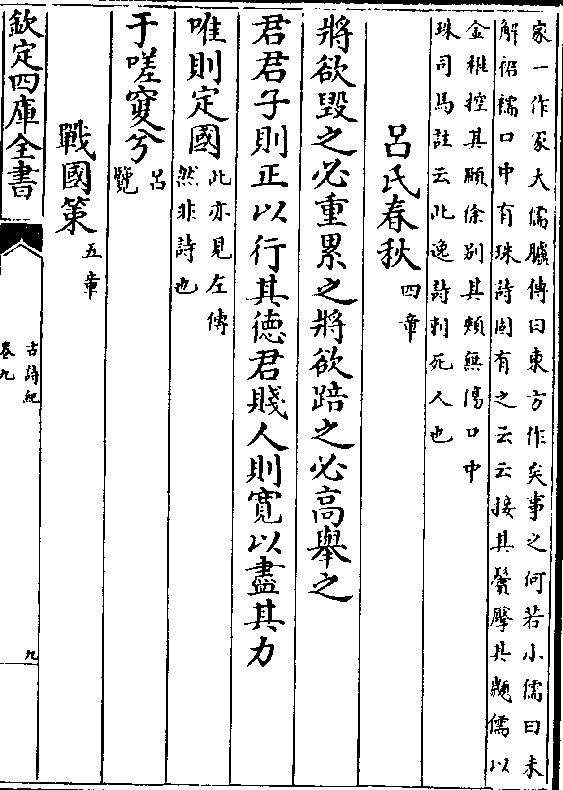 家一作冡大儒臚傳曰東方作矣事之何若小儒曰未
解裙襦口中有珠詩固有之云云接其鬢擪其顪儒以
金椎控其頤徐别其頰無傷口中
珠司馬註云此逸詩刺死人也
吕氏春秋四章
將欲毁之必重累之將欲踣之必高舉之
君君子則正以行其徳君賤人則寛以盡其力
唯則定國此亦見左傳
然非詩也
于嗟夐兮吕
覽
戰國策五章
欽定四庫全書
古詩紀
卷九
九